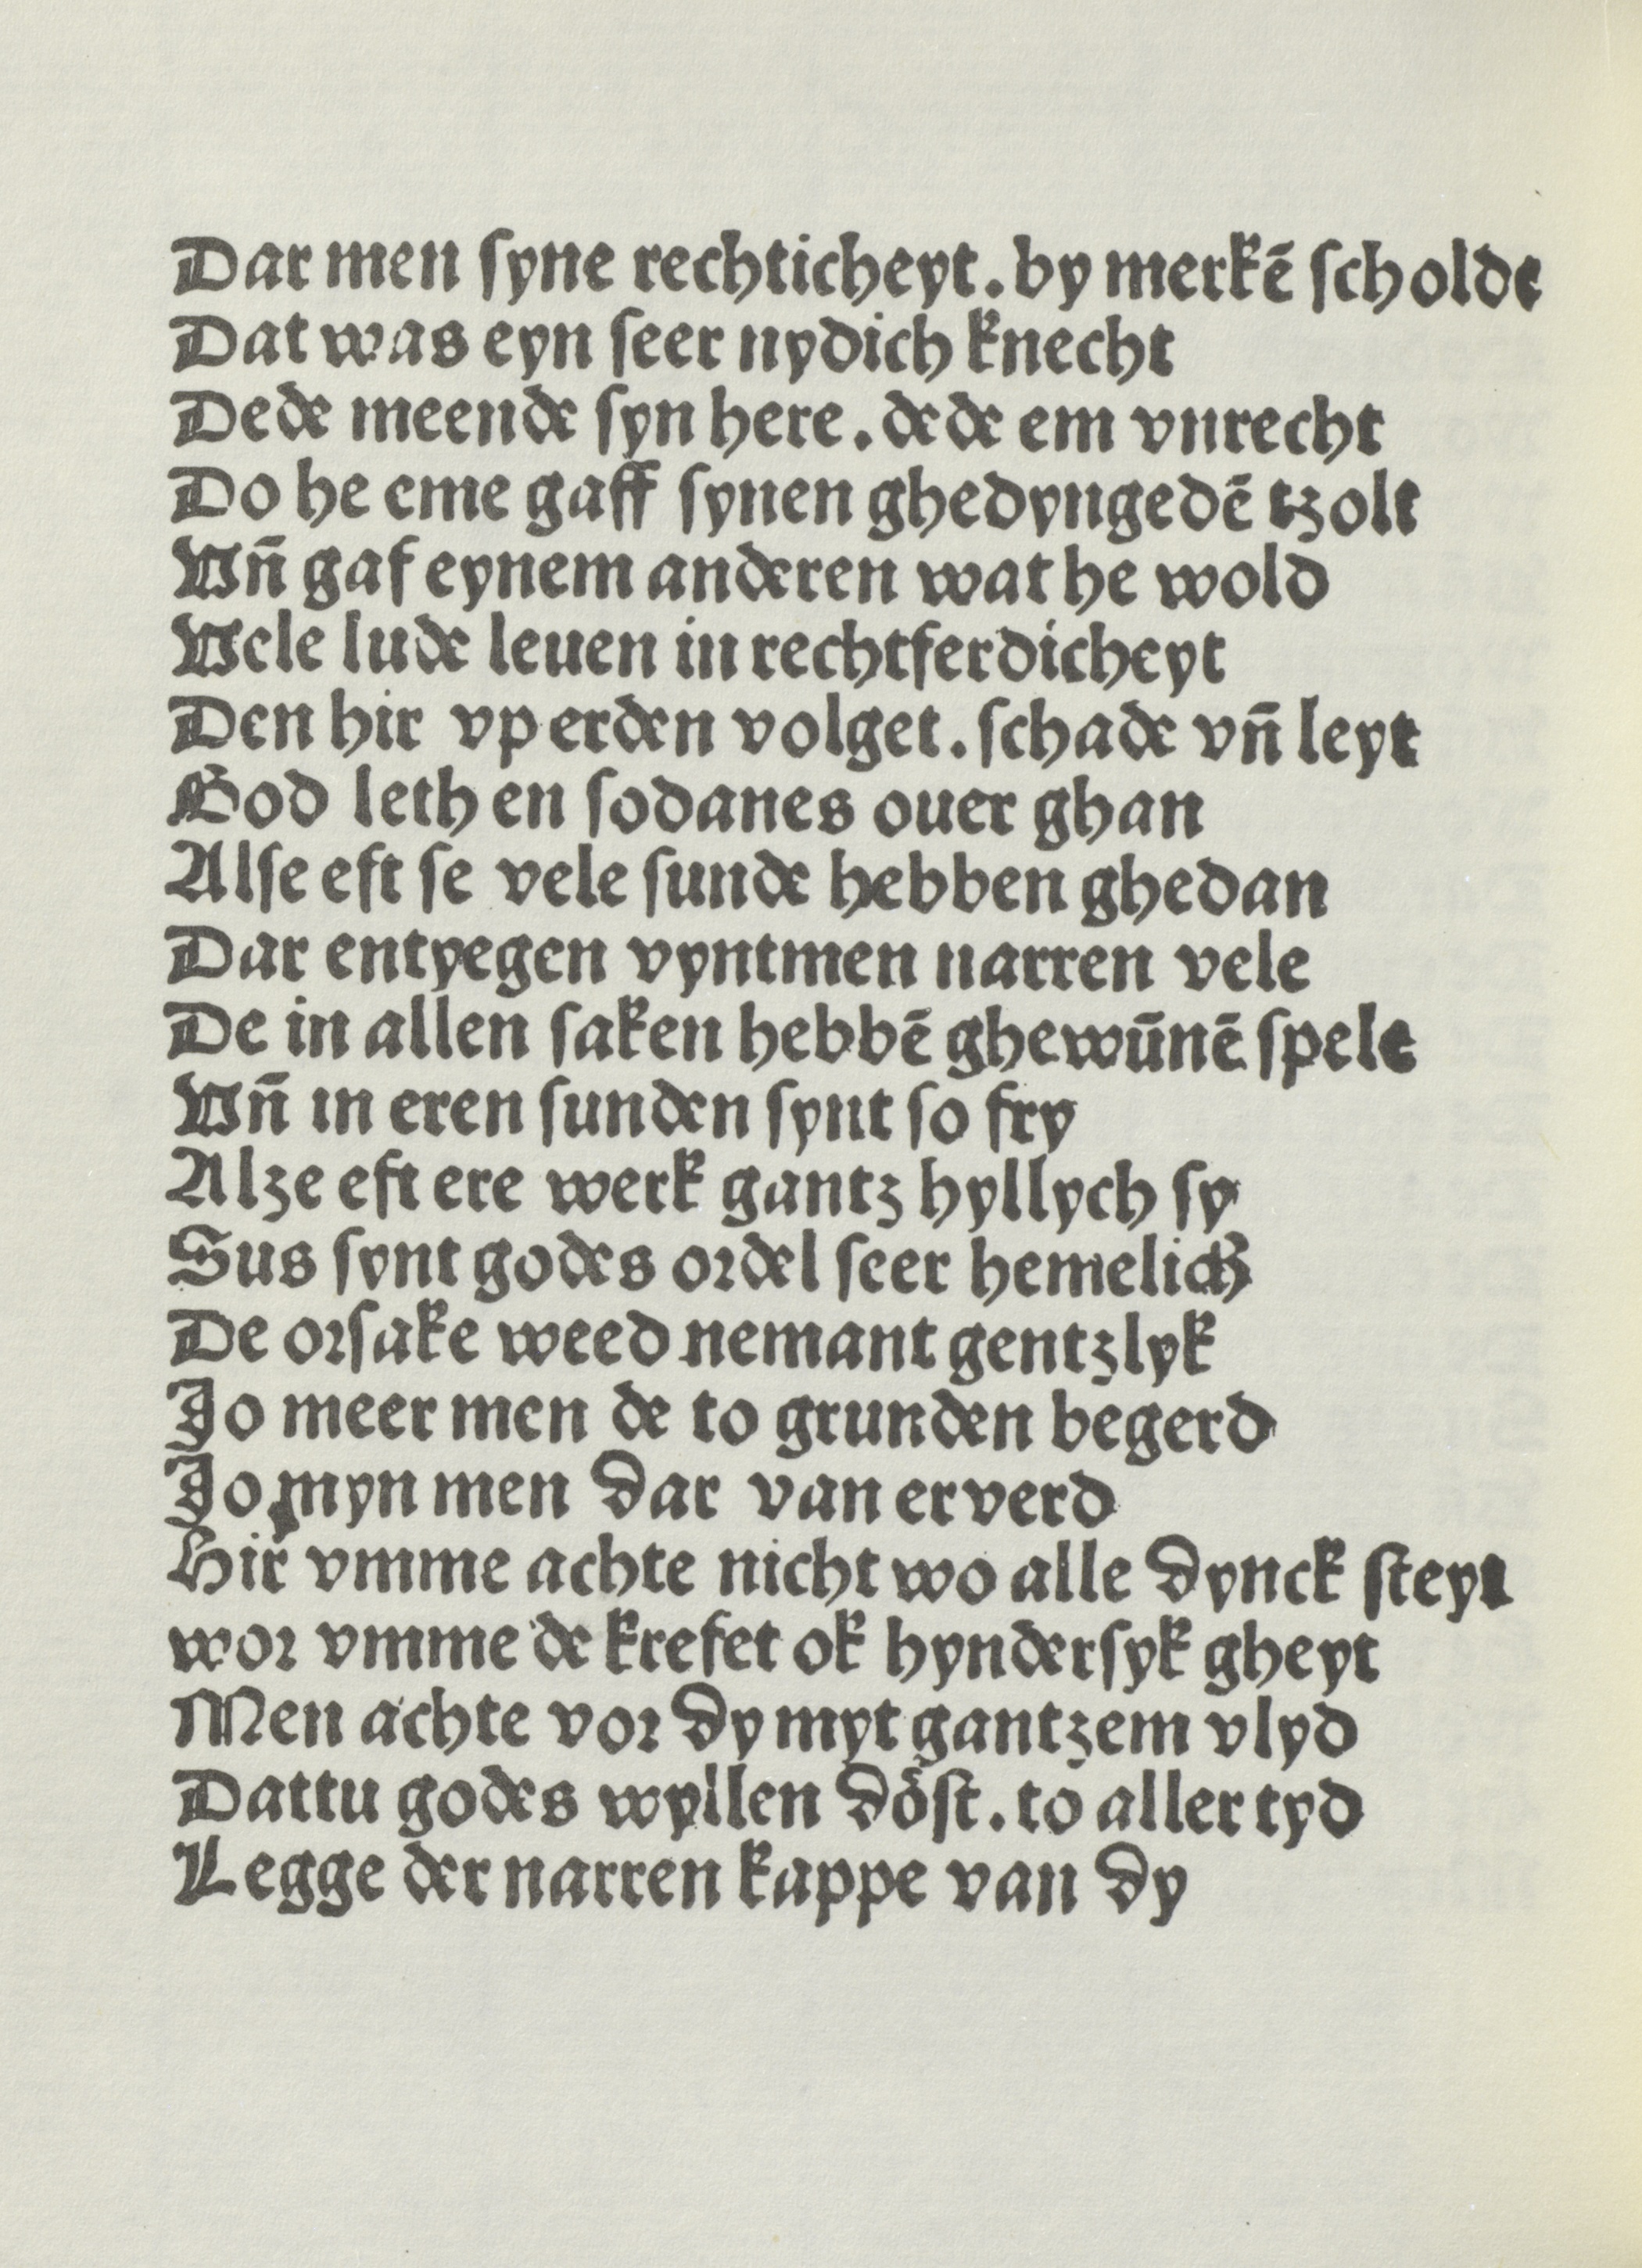 Dar men ſyne rechticheyt. by merkē ſcholde
Dat was eyn ſeer nydich knecht
Dede meende ſyn here. dede em vnrecht
Do he eme gaff ſynen ghedyngedē tzolt
Vn̄ gaf eynem anderen wat he wold
Vele lude leuen in rechtferdicheyt
Den hir vp erden volget. ſchade vn̄ leyt
God leth en ſodanes ouer ghan
Alſe eft ſe vele ſunde hebben ghedan
Dar entyegen vyntmen narren vele
De in allen ſaken hebbē ghewūnē ſpele
Vn̄ in eren ſunden ſynt ſo fry
Alze eft ere werk gantz hyllych ſy
Sus ſynt godes ordel ſeer hemelich
De orſake weed nemant gentzlyk
Jo meer men de to grunden begerd
Jo myn men dar van erverd
Hir vmme achte nicht wo alle dynck ſteyt
wor vmme de krefet ok hynderſyk gheyt
Men achte vor dy myt gantzem vlyd
Dattu godes wyllen doͤſt. to aller tyd
Legge der narren kappe van dy